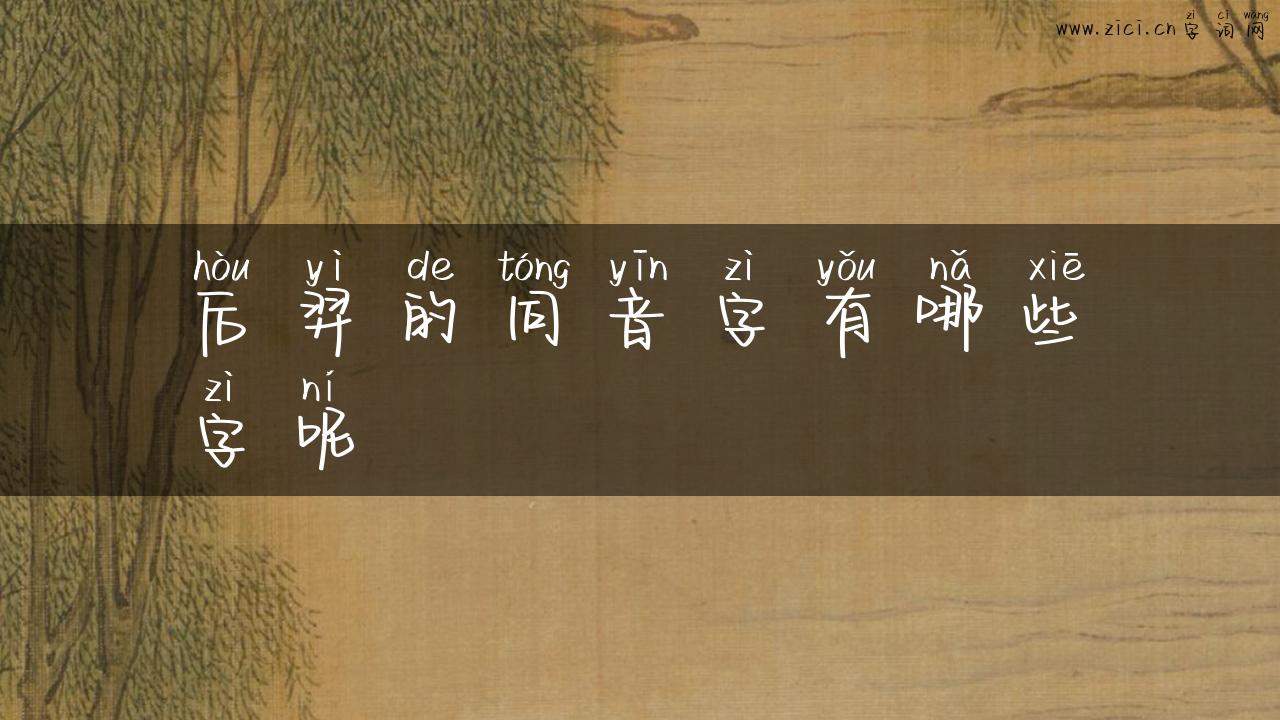 zì cí wǎng
www.zici.cn 字词网
hòu yì de tóng yīn zì yǒu nǎ xiē
后羿的同音字有哪些
zì ní
字呢